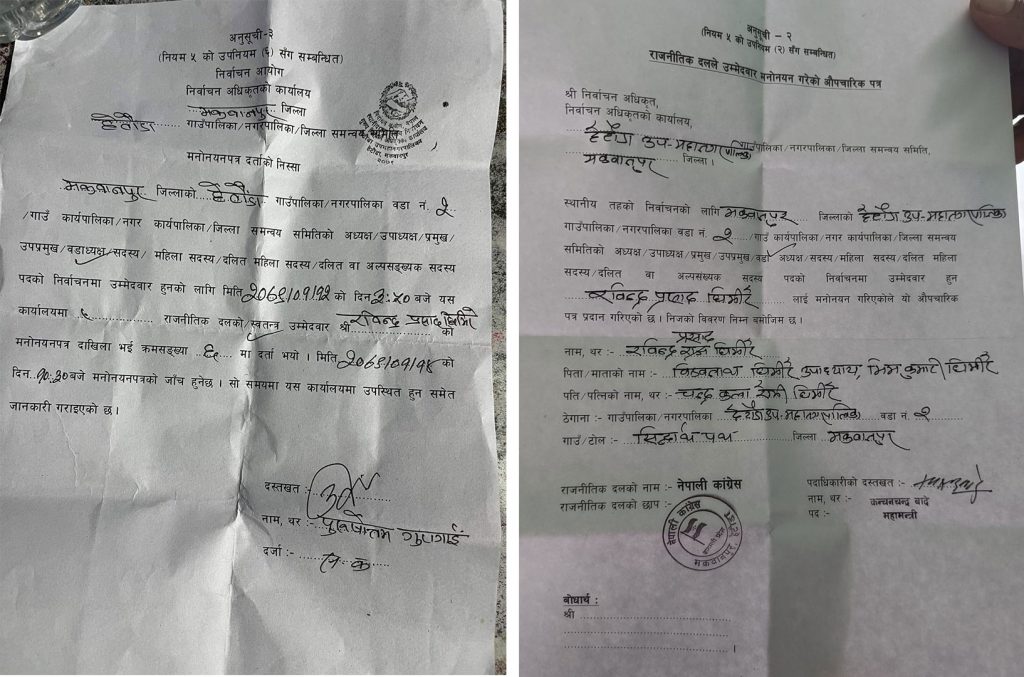 अनुसूची-३
(नियम ५ को उपनियम (६) सँग सम्बन्धित)
निर्वाचन आयोग
निर्वाचन अधिकृतको कार्यालय
मकवानपुर जिल्ला
हेटौंडा गाउँपालिका/नगरपालिका/जिल्ला समन्वय समिति
मनोनयनपत्र दर्ताको निस्सा
मकवानपुर जिल्लाको हेटौंडा गाउँपालिका/नगरपालिका वडा नं. २
/गाउँ कार्यपालिका/नगर कार्यपालिका/जिल्ला समन्वय समितिको अध्यक्ष/उपाध्यक्ष/प्रमुख/
उपप्रमुख/वडाध्यक्ष/सदस्य/ महिला सदस्य/दलित महिला सदस्य/दलित वा अल्पसङ्ख्यक सदस्य
पदको निर्वाचनमा उम्मेदवार हुनको लागि मिति को दिन बजे यस
कार्यालयमा राजनीतिक दलको/स्वतन्त्र उम्मेदवार श्री रविन्द्र प्रसाद घिमिरे को
मनोनयनपत्र दाखिला भई क्रमसङ्ख्या मा दर्ता भयो । मिति को
दिन १०:३० बजे मनोनयनपत्रको जाँच हुनेछ । सो समयमा यस कार्यालयमा उपस्थित हुन समेत
जानकारी गराइएको छ ।
दस्तखत :-
नाम, थर :- पुरुषोत्तम गुरागाईं
दर्जा :-
अनुसूची - २
(नियम ५ को उपनियम (२) सँग सम्बन्धित)
राजनीतिक दलले उम्मेदवार मनोनयन गरेको औपचारिक पत्र
श्री निर्वाचन अधिकृत,
निर्वाचन अधिकृतको कार्यालय,
हेटौंडा उप-महानगरपालिका गाउँपालिका/नगरपालिका/जिल्ला समन्वय समिति,
मकवानपुर जिल्ला ।
स्थानीय तहको निर्वाचनको लागि मकवानपुर जिल्लाको हेटौंडा उप-महानगरपालिका
गाउँपालिका/नगरपालिका वडा नं. २ /गाउँ कार्यपालिका/नगर कार्यपालिका/जिल्ला समन्वय
समितिको अध्यक्ष/उपाध्यक्ष/प्रमुख/उपप्रमुख/वडा अध्यक्ष/सदस्य/महिला सदस्य/दलित महिला
सदस्य/दलित वा अल्पसंख्यक सदस्य पदको निर्वाचनमा उम्मेदवार हुन
रविन्द्र प्रसाद घिमिरे लाई मनोनयन गरिएकोले यो औपचारिक
पत्र प्रदान गरिएको छ । निजको विवरण निम्न बमोजिम छ ।
प्रसाद
नाम, थर :- रविन्द्र घिमिरे
पिता/माताको नाम :- विश्वनाथ घिमिरे उपाध्याय, भिम कुमारी घिमिरे
पति/पत्निको नाम, थर :- चन्द्र कला घिमिरे
ठेगाना :- गाउँपालिका/नगरपालिका हेटौंडा उप-महानगरपालिका वडा नं. २
गाउँ/टोल :- सिद्धार्थ पथ जिल्ला मकवानपुर
राजनीतिक दलको नाम :- नेपाली कांग्रेस
राजनीतिक दलको छाप :-
नेपाली कांग्रेस
मकवानपुर,
पदाधिकारीको दस्तखत :-
नाम, थर :- कन्चनचन्द्र बादे
पद :- महामन्त्री
बोधार्थ :
श्री